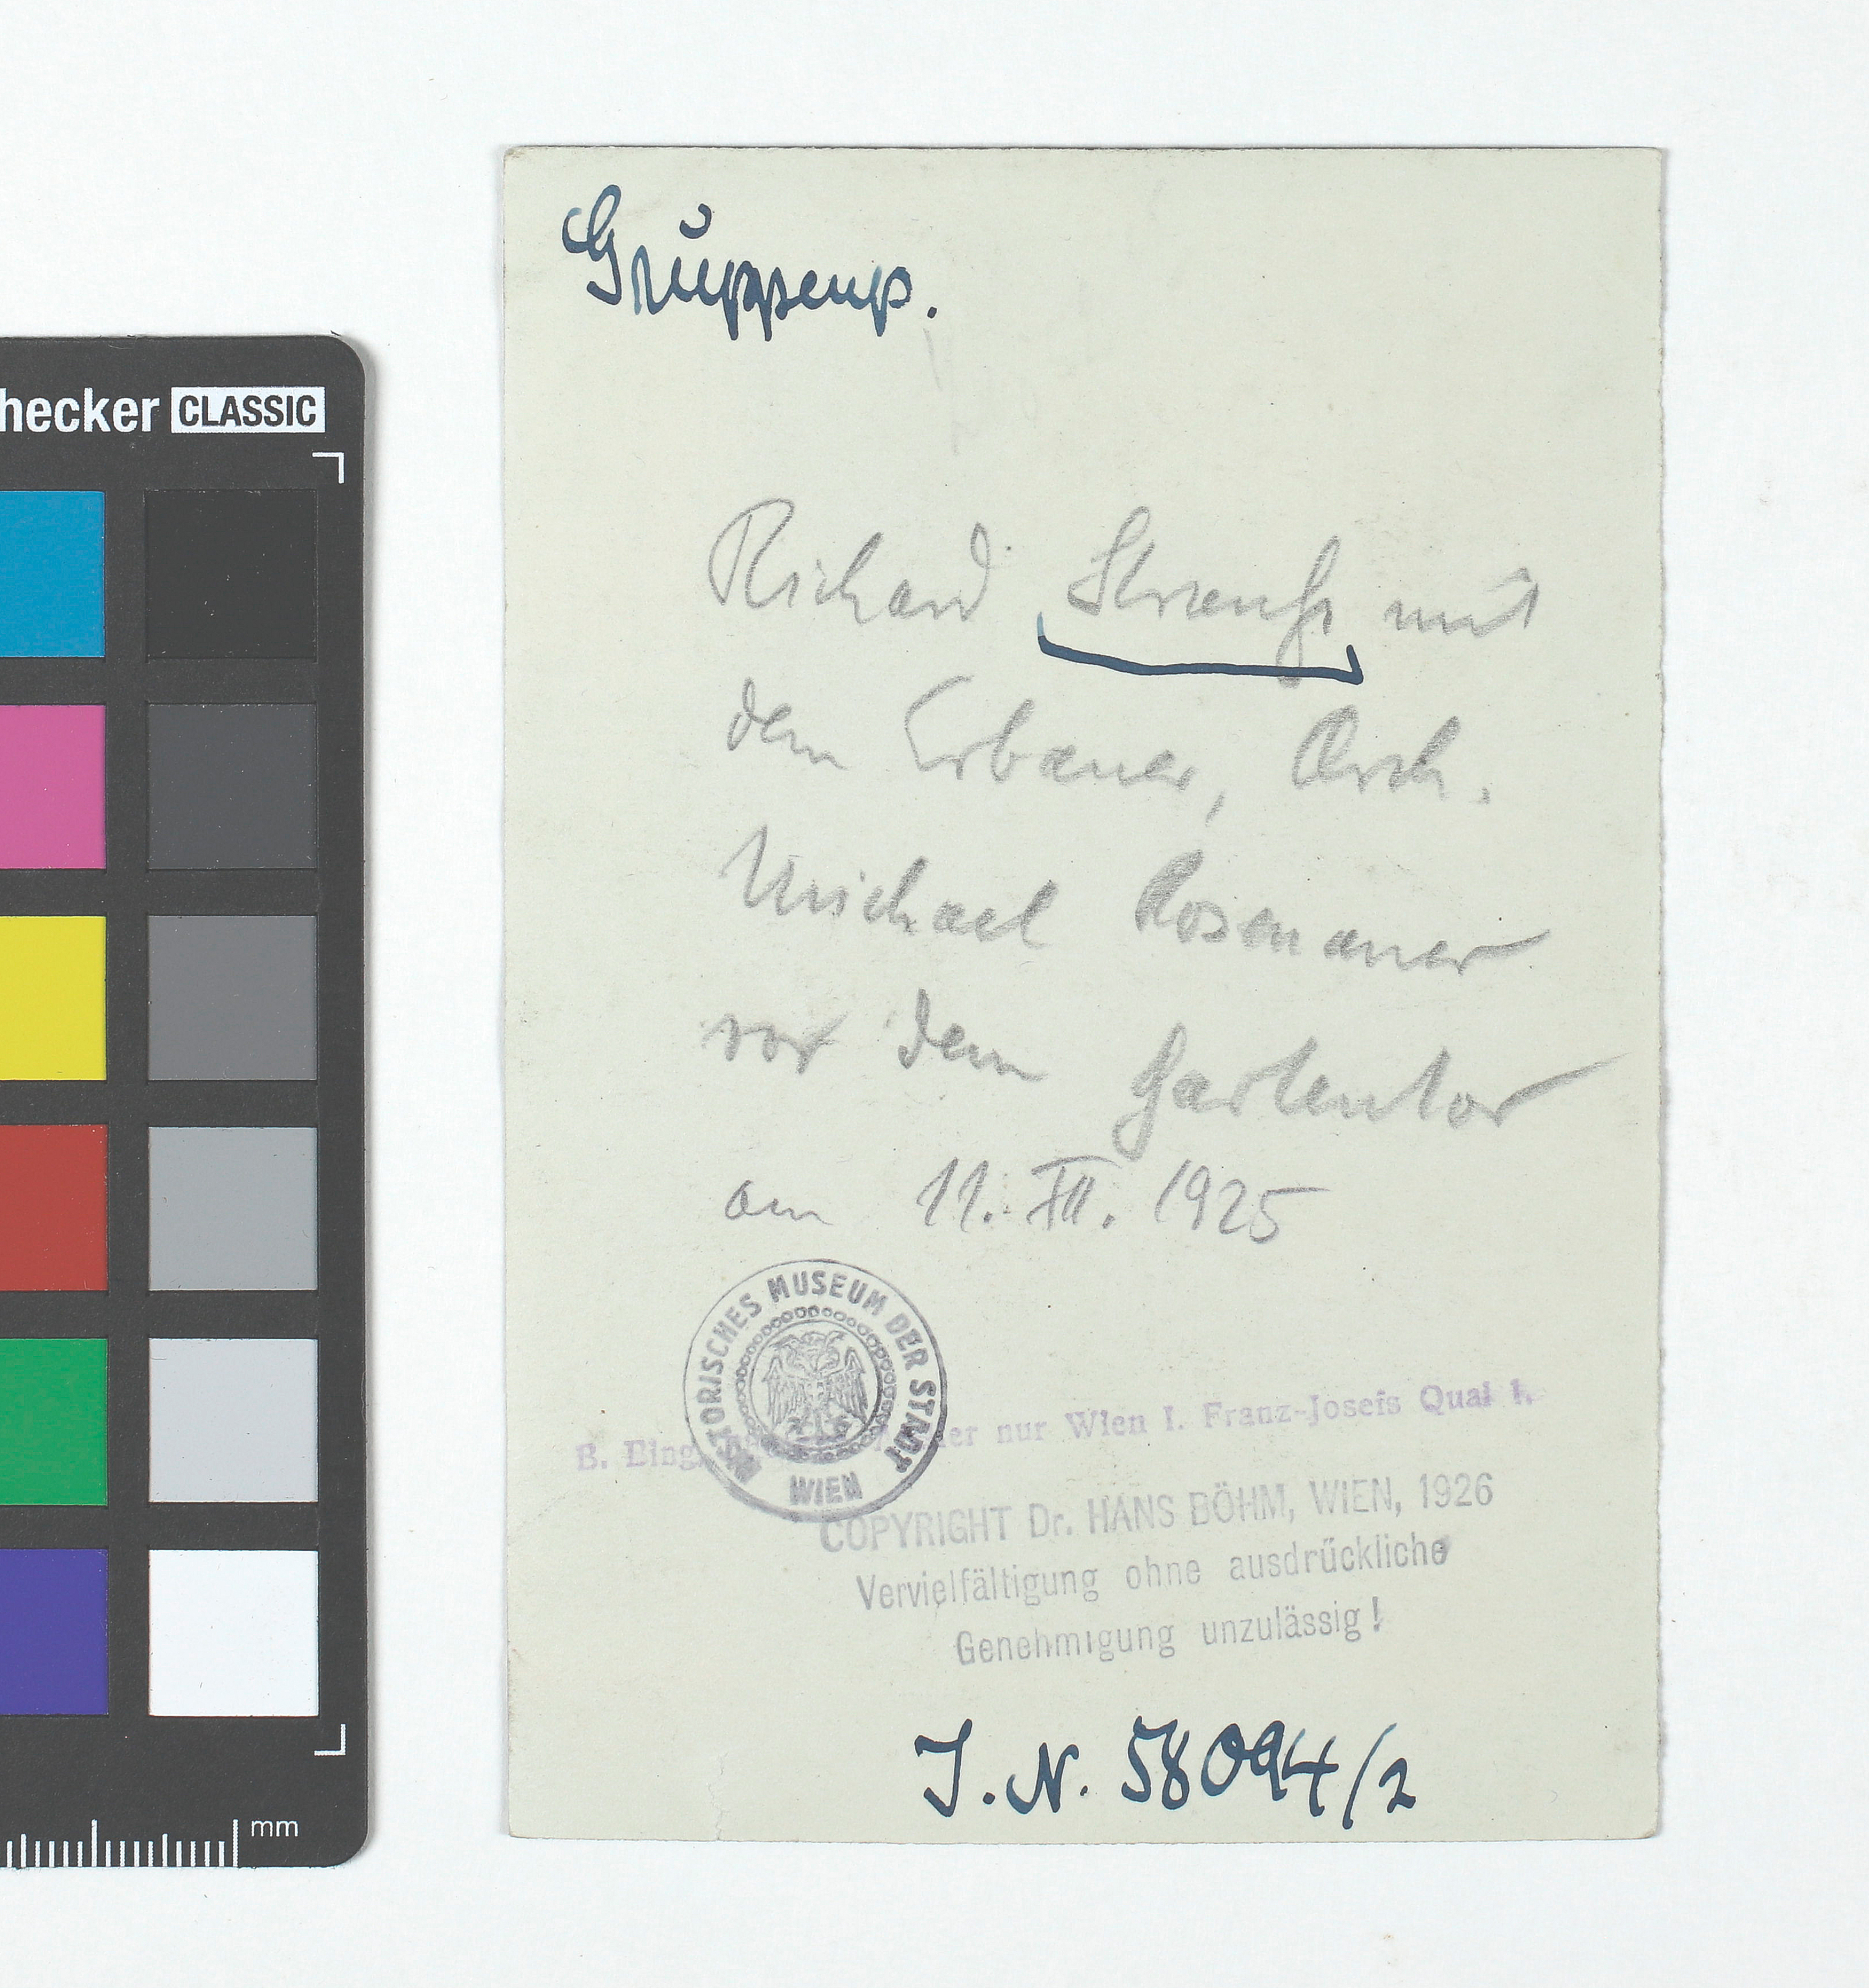 Gruppenp.
hecker CLASSIC
Richard Strauß mit
dem Erbauer, Arch.
Michael Rosenauer
vor dem Gartentor
am 11. XII. 1925
HISTORISCHES MUSEUM DER STADT WIEN
B. Eing. nur Wien I. Franz-Josefs Quai 1.
COPYRIGHT Dr. HANS BÖHM, WIEN, 1926
Vervielfältigung ohne ausdrückliche
Genehmigung unzulässig!
J.N. 58094/2
mm